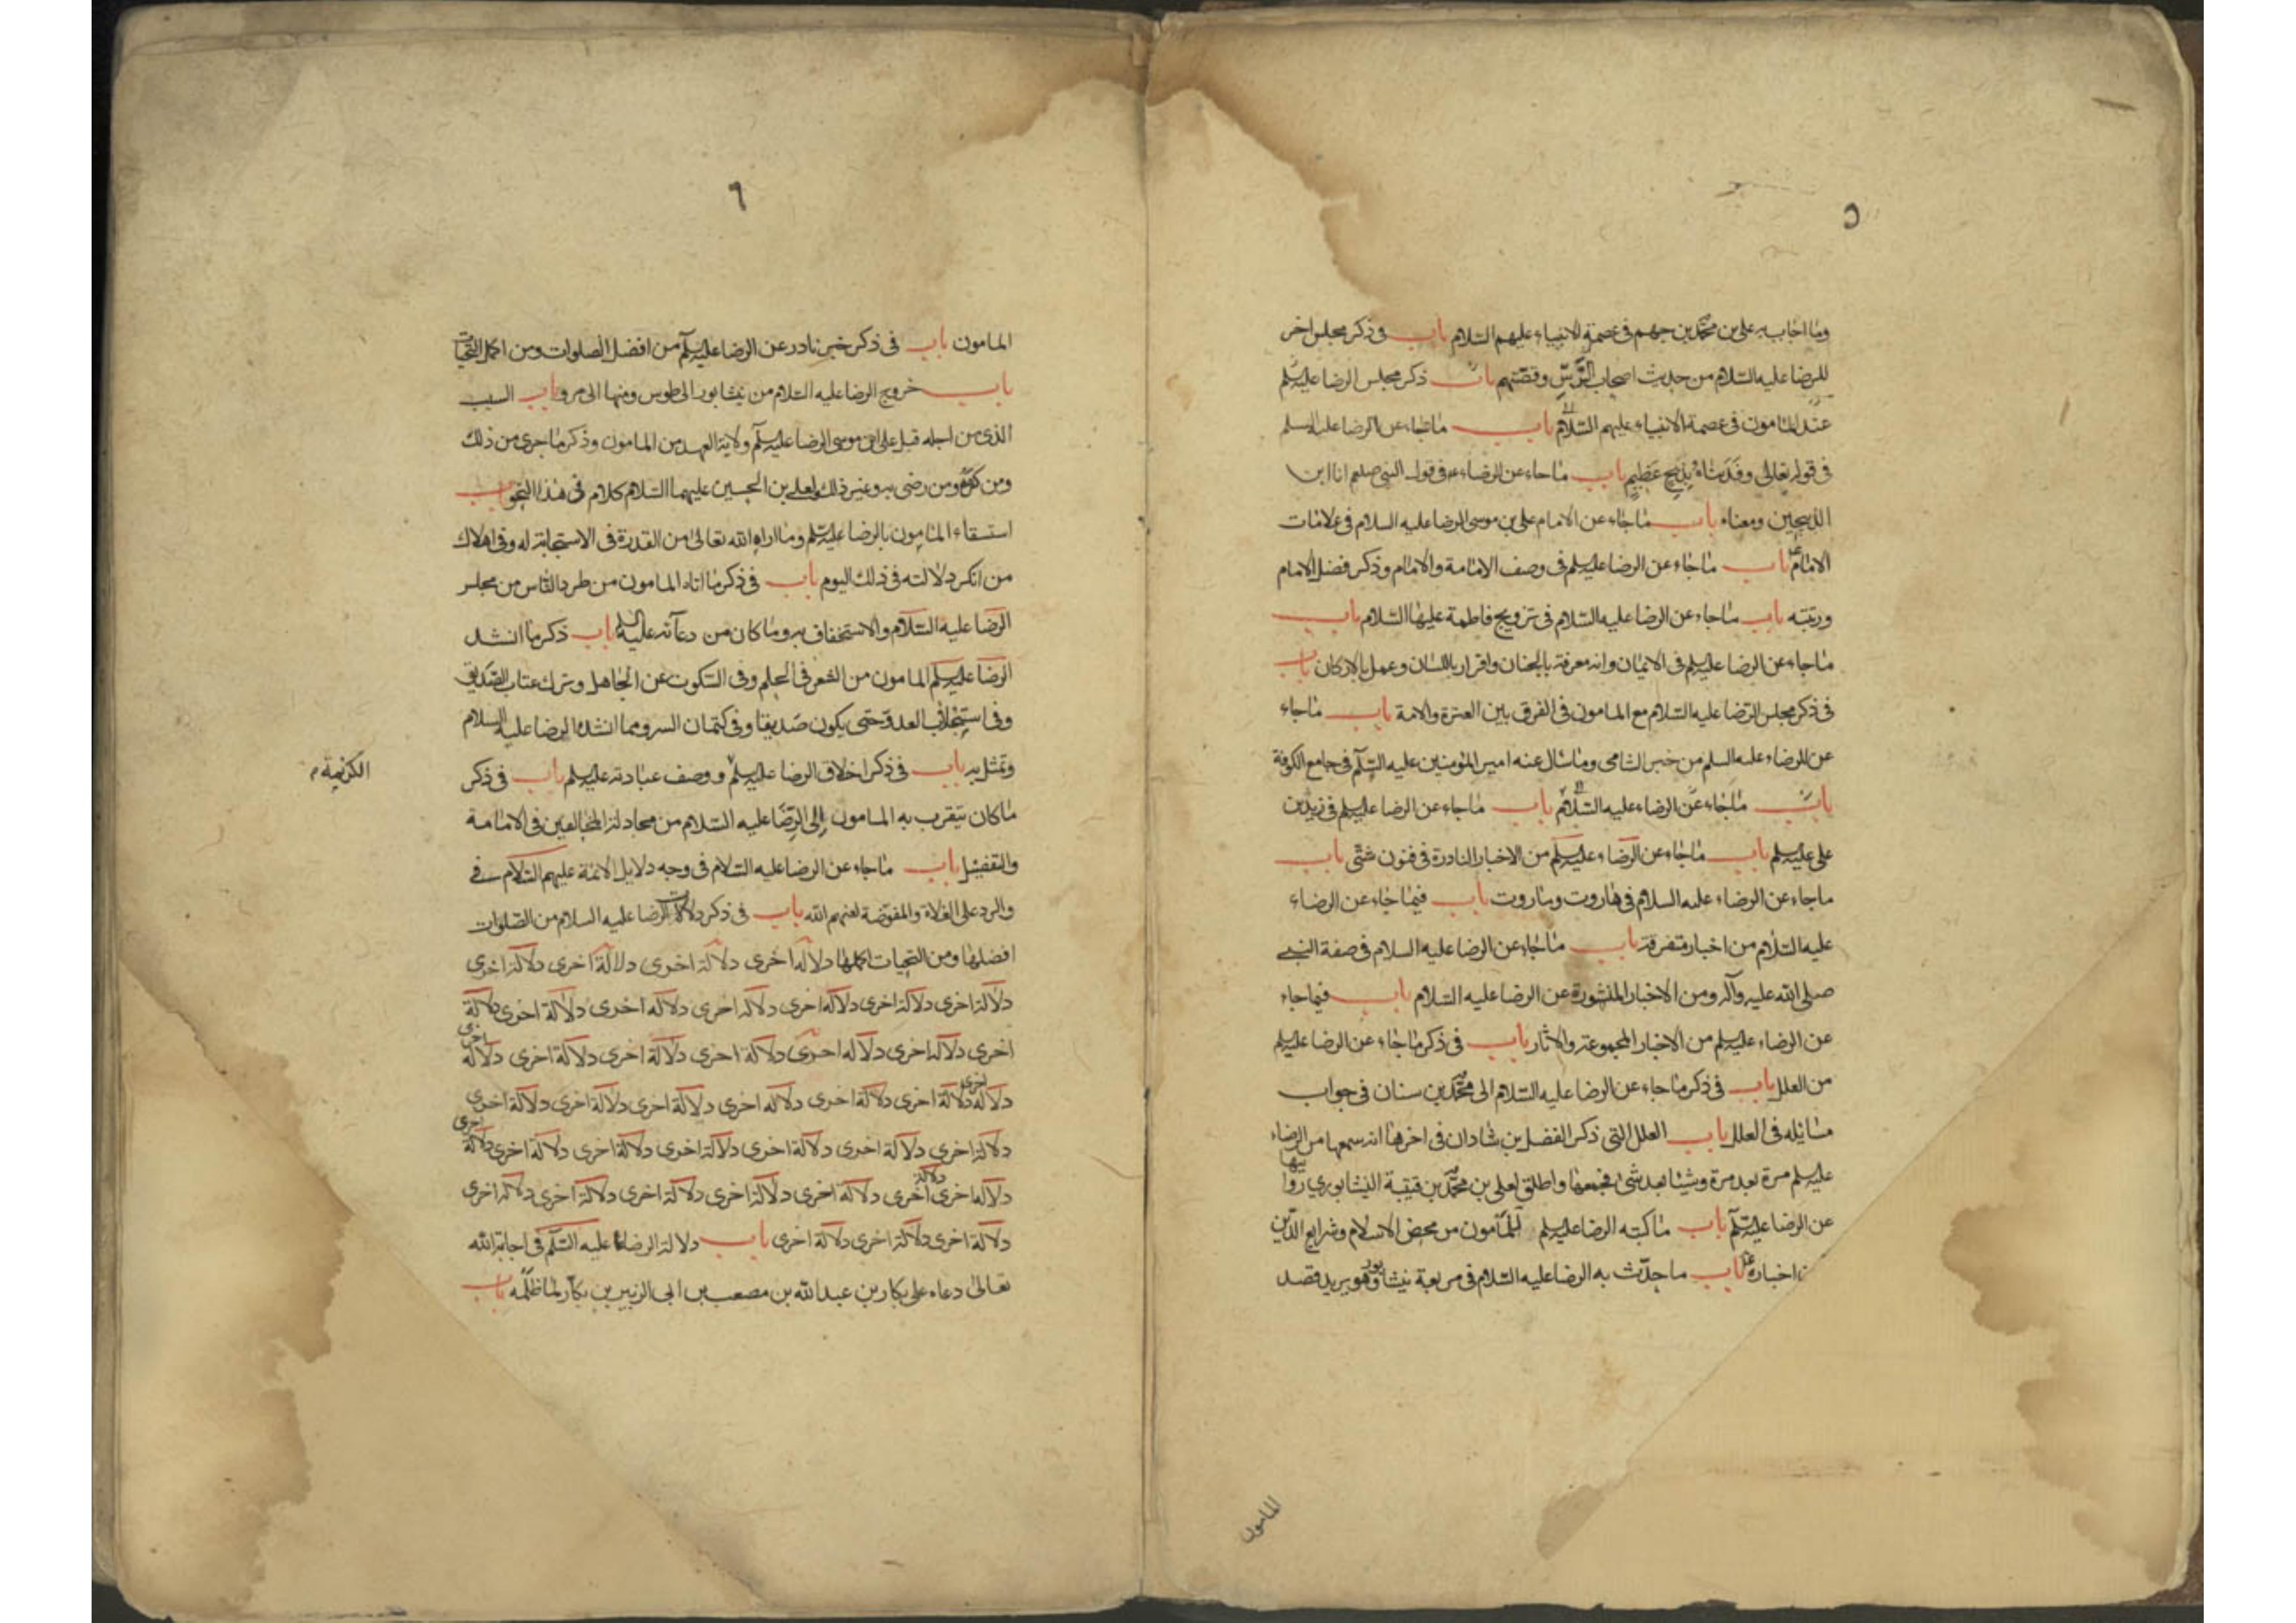 ٥
وما اجاب به على بن محمد بن جهم فى عصمة الانبياء عليهم السلام باب فى ذكر مجلس اخر
للرضا عليه السلام من حديث اصحاب الرس وقصتهم باب ذكر مجلس الرضا عليه السلم
عند المامون فى عصمة الانبياء عليهم السلام باب ما جاء عن الرضا عليه السلم
فى قوله تعالى وفديناه بذبح عظيم باب ما جاء عن الرضاء فى قول النبى صلعم انا ابن
الذبيحين ومعناه باب ما جاء عن الامام على بن موسى الرضا عليه السلام فى علامات
الامام باب ما جاء عن الرضا عليه السلم فى وصف الامامة والامام وذكر فضل الامام
ورتبته باب ما جاء عن الرضا عليه السلام فى تزويج فاطمة عليها السلام باب
ما جاء عن الرضا عليه السلم فى الايمان وانه معرفة بالجنان واقرار باللسان وعمل بالاركان باب
فى ذكر مجلس الرضا عليه السلام مع المامون فى الفرق بين العترة والامة باب ما جاء
عن الرضاء عليه السلم من خبر الشامى وما سأل عنه امير المؤمنين عليه السلم فى جامع الكوفة
باب ما جاء عن الرضاء عليه السلام باب ما جاء عن الرضا عليه السلم فى زيد بن
على عليه السلم باب ما جاء عن الرضاء عليه السلم من الاخبار النادرة فى فنون شتى باب
ما جاء عن الرضاء عليه السلام فى هاروت وماروت باب فيما جاء عن الرضاء
عليه السلام من اخبار متفرقة باب ما جاء عن الرضا عليه السلام فى صفة النبى
صلى الله عليه وآله ومن الاخبار المنثورة عن الرضا عليه السلام باب فيما جاء
عن الرضاء عليه السلم من الاخبار المجموعة والاثار باب فى ذكر ما جاء عن الرضا عليه السلم
من العلل باب فى ذكر ما جاء عن الرضا عليه السلام الى محمد بن سنان فى جواب
مسائله فى العلل باب العلل التى ذكر الفضل بن شاذان فى اخرها انه سمعها من الرضاء
عليه السلم مرة بعد مرة وشيئا بعد شئ فجمعها واطلق لعلى بن محمد بن قتيبة النيشابورى روايتها
عن الرضا عليه السلم باب ما كتبه الرضا عليه السلم للمامون من محض الاسلام وشرايع الدين
اخباره باب ما حدث به الرضا عليه السلام فى مربعة نيشابور وهو يريد قصد
المامون
٦
المامون باب فى ذكر خبر نادر عن الرضا عليه السلم من افضل الصلوات ومن اكمل التحيات
باب خروج الرضا عليه السلام من نيشابور الى طوس ومنها الى مرو باب السبب
الذى من اجله قبل على ابن موسى الرضا عليه السلم ولاية العهد من المامون وذكر ما جرى من ذلك
ومن كرهه ومن رضى به وغير ذلك ولعلى بن الحسين عليهما السلام كلام فى هذا النحو باب
استسقاء المامون بالرضا عليه السلم وما اراه الله تعالى من القدرة فى الاستجابة له وفى اهلاك
من انكر دلالته فى ذلك اليوم باب فى ذكر ما اتاه المامون من طرد الناس من مجلس
الرضا عليه السلام والاستخفاف به وما كان من دعائه عليه السلم باب ذكر ما انشد
الرضا عليه السلم المامون من الشعر فى الحلم وفى السكوت عن الجاهل وترك عتاب الصديق
وفى استجلاب العدو حتى يكون صديقا وفى كتمان السر ومما انشده الرضا عليه السلام
وتمثل به باب فى ذكر اخلاق الرضا عليه السلم ووصف عبادته عليه السلم باب فى ذكر
الكريمة
ما كان يتقرب به المامون الى الرضا عليه السلام من مجادلة المخالفين فى الامامة
والتفضيل باب ما جاء عن الرضا عليه السلام فى وجه دلايل الائمة عليهم السلام فى
والرد على الغلاة والمفوضة لعنهم الله باب فى ذكر دلالات الرضا عليه السلام من الصلوات
افضلها ومن التحيات اكملها دلالة اخرى دلالة اخرى دلالة اخرى دلالة اخرى
دلالة اخرى دلالة اخرى دلالة اخرى دلالة اخرى دلالة اخرى دلالة اخرى دلالة
اخرى دلالة اخرى دلالة اخرى دلالة اخرى دلالة اخرى دلالة اخرى دلالة اخرى
دلالة اخرى دلالة اخرى دلالة اخرى دلالة اخرى دلالة اخرى دلالة اخرى دلالة اخرى
دلالة اخرى دلالة اخرى دلالة اخرى دلالة اخرى دلالة اخرى دلالة اخرى دلالة اخرى
دلالة اخرى دلالة اخرى دلالة اخرى دلالة اخرى دلالة اخرى دلالة اخرى دلالة اخرى
دلالة اخرى دلالة اخرى دلالة اخرى باب دلالة الرضا عليه السلم فى اجابة الله
تعالى دعاءه على بكار بن عبد الله بن مصعب بن ابى الزبير بن بكار لما ظلمه باب